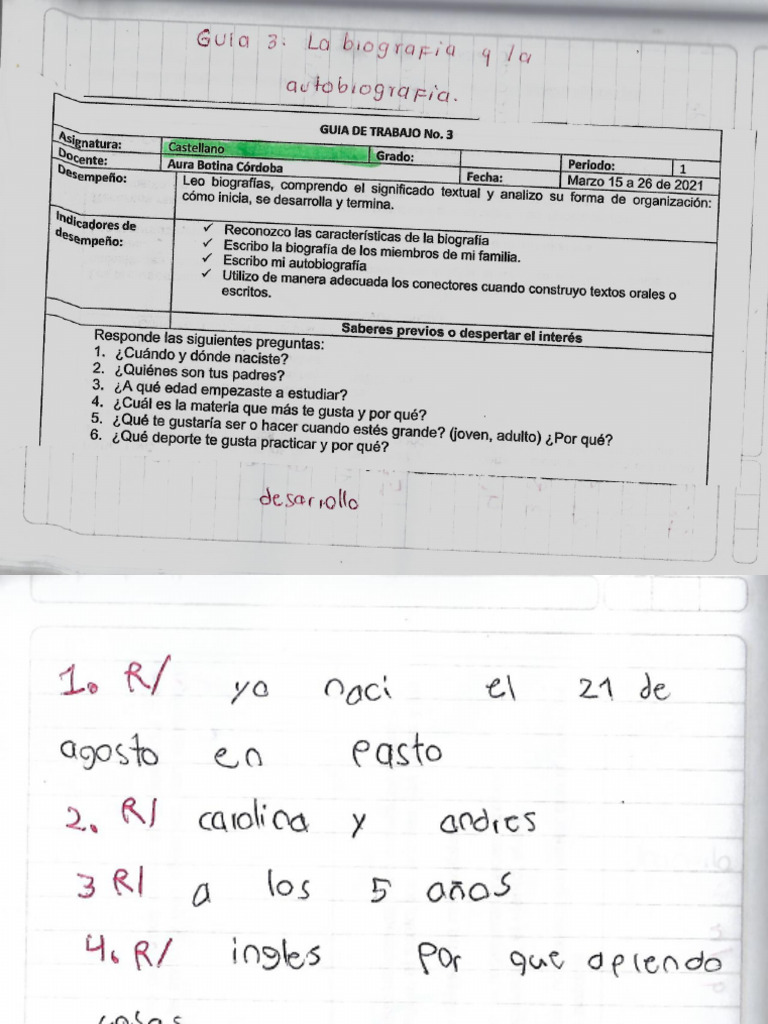 Guia 3. La biografia y la
autobiografia.
GUIA DE TRABAJO No. 3
Asignatura: Castellano Grado: Periodo: 1
Docente: Aura Botina Córdoba Fecha: Marzo 15 a 26 de 2021
Desempeño: Leo biografías, comprendo el significado textual y analizo su forma de organización:
cómo inicia, se desarrolla y termina.
Indicadores de
desempeño:
✓ Reconozco las características de la biografía
✓ Escribo la biografía de los miembros de mi familia.
✓ Escribo mi autobiografía
✓ Utilizo de manera adecuada los conectores cuando construyo textos orales o
escritos.
Saberes previos o despertar el interés
Responde las siguientes preguntas:
1. ¿Cuándo y dónde naciste?
2. ¿Quiénes son tus padres?
3. ¿A qué edad empezaste a estudiar?
4. ¿Cuál es la materia que más te gusta y por qué?
5. ¿Qué te gustaría ser o hacer cuando estés grande? (joven, adulto) ¿Por qué?
6. ¿Qué deporte te gusta practicar y por qué?
desarrollo
1. R/ yo naci el 21 de
agosto en pasto
2. R/ carolina y andres
3 R/ a los 5 años
4. R/ ingles por que aprendo
cosas